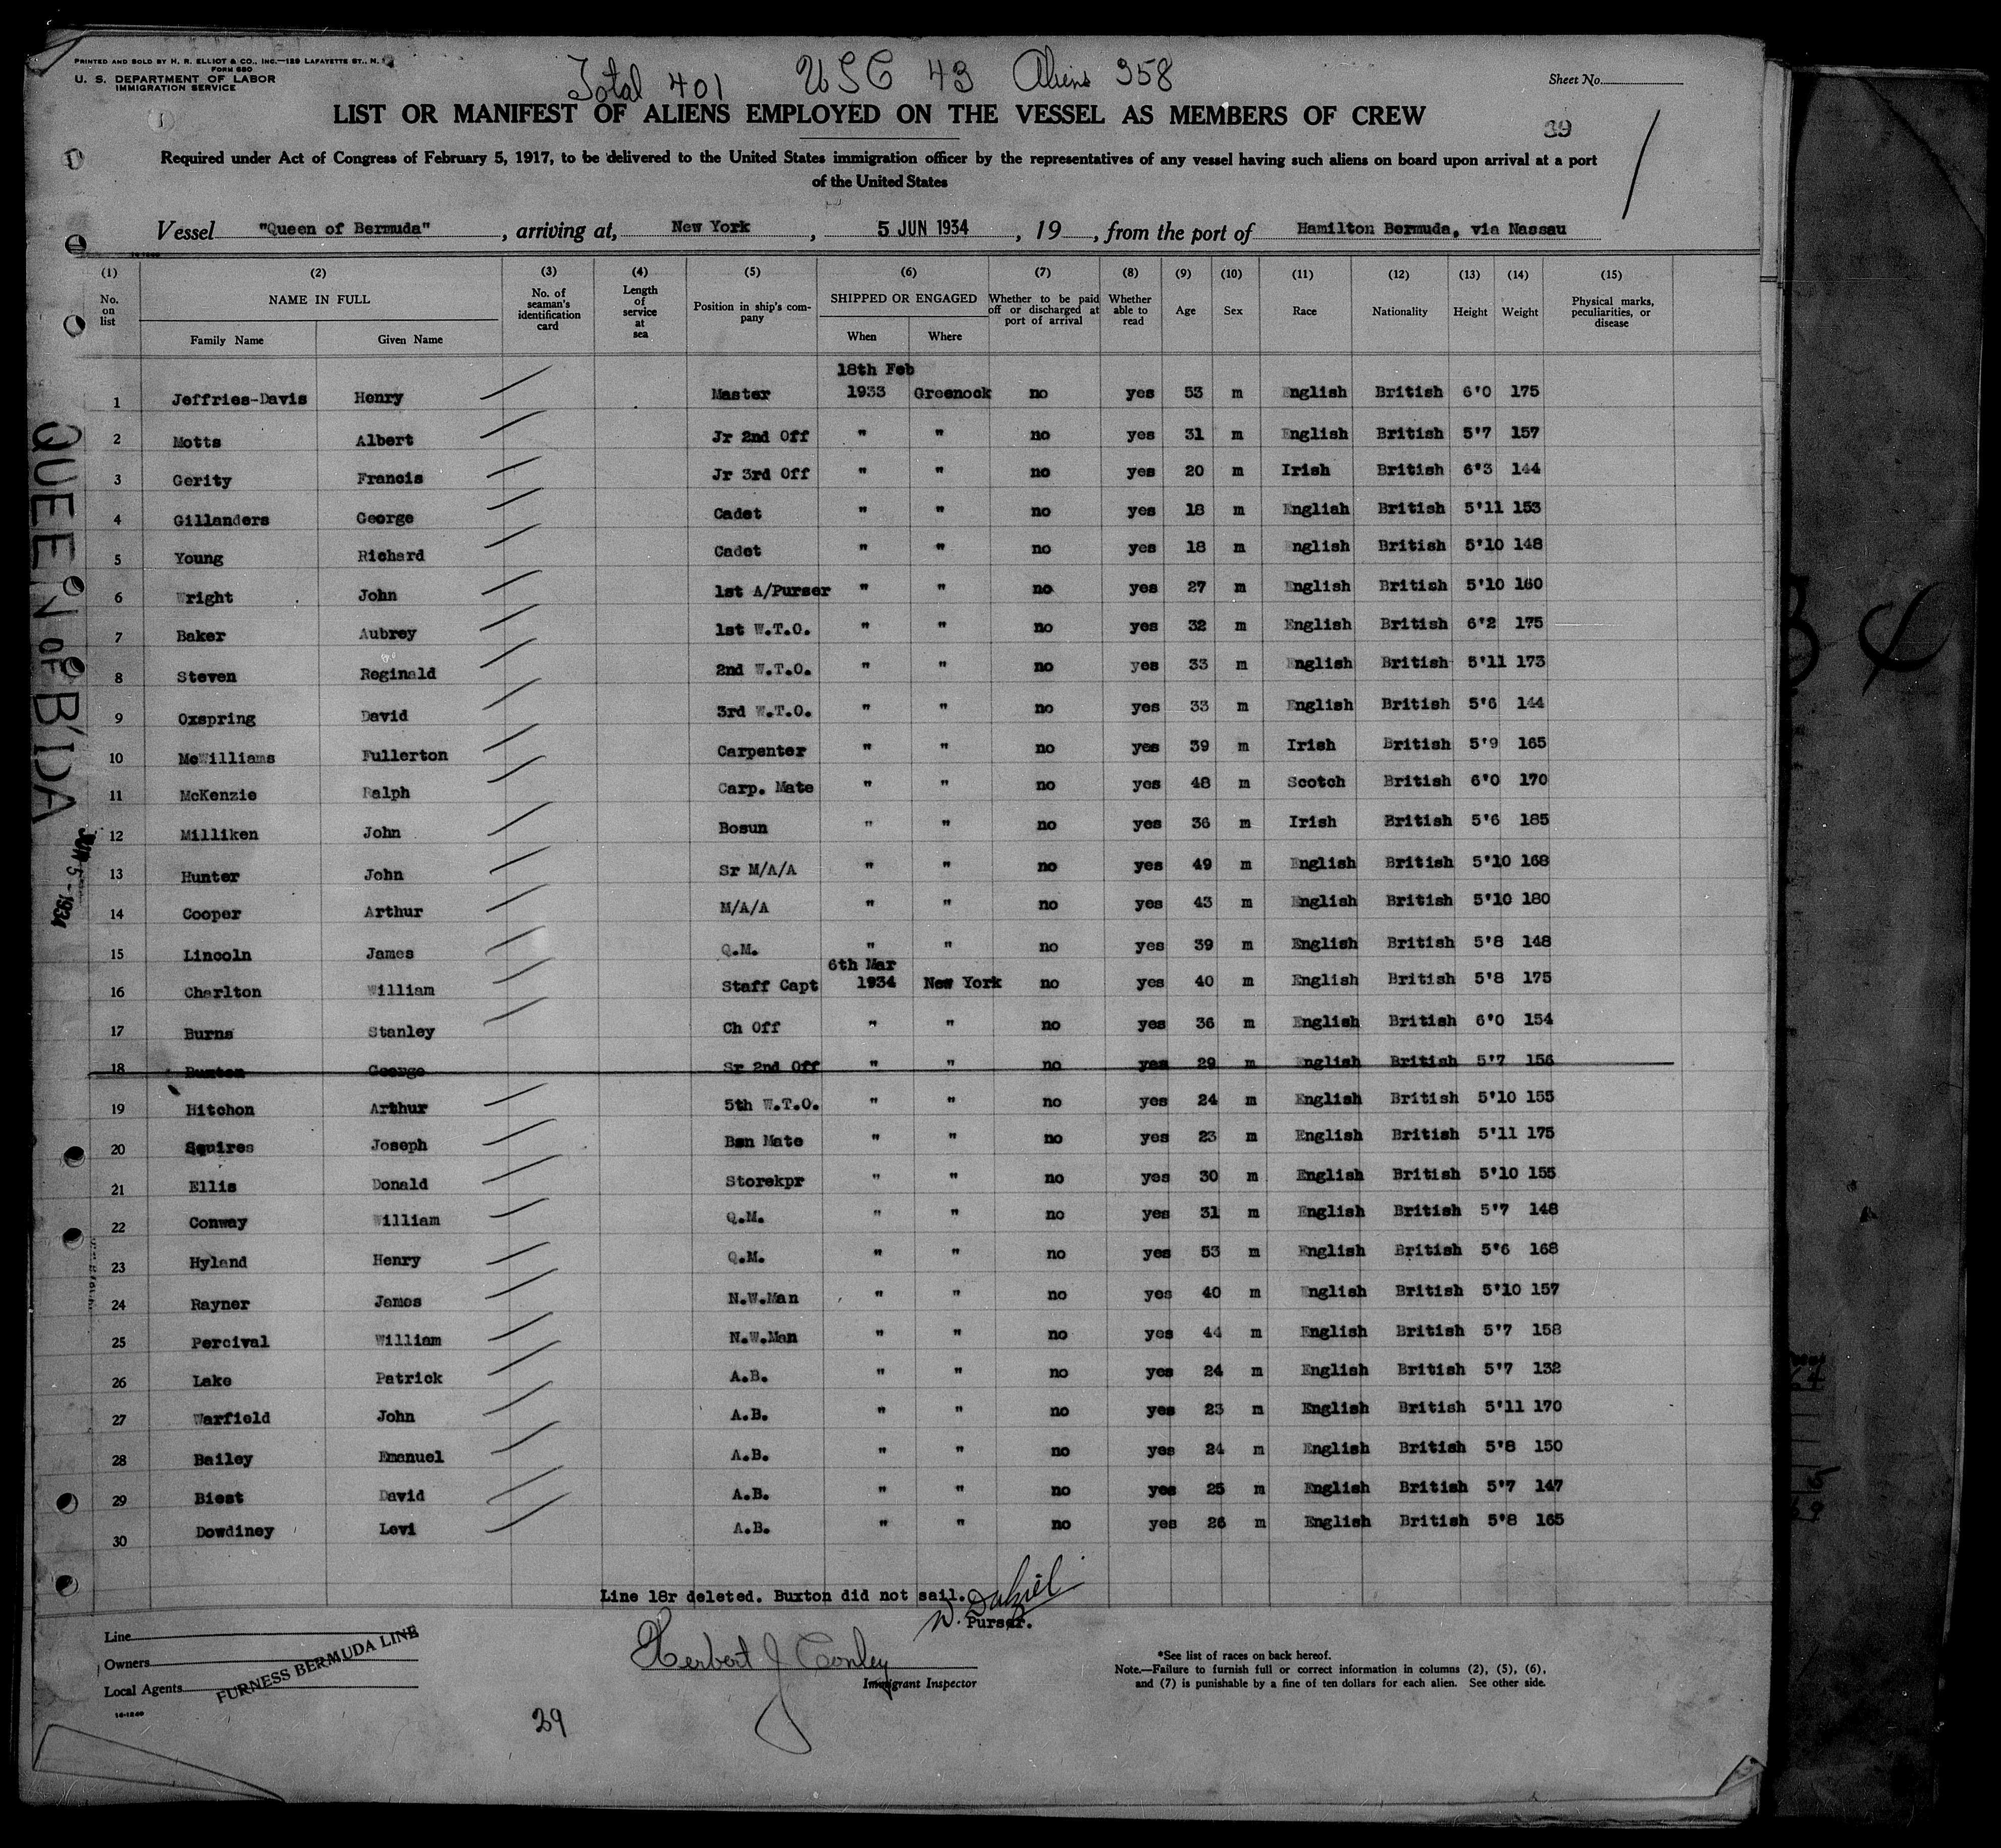 PRINTED AND SOLD BY H. R. ELLIOT & CO., INC.—129 LAFAYETTE ST., N.
FORM 680
U. S. DEPARTMENT OF LABOR
IMMIGRATION SERVICE
Total 401 USC 43 Aliens 358
Sheet No.
LIST OR MANIFEST OF ALIENS EMPLOYED ON THE VESSEL AS MEMBERS OF CREW
39
Required under Act of Congress of February 5, 1917, to be delivered to the United States immigration officer by the representatives of any vessel having such aliens on board upon arrival at a port
of the United States
Vessel "Queen of Bermuda", arriving at, New York, 5 JUN 1934, 19, from the port of Hamilton Bermuda, via Nassau
(1) (2) (3) (4) (5) (6) (7) (8) (9) (10) (11) (12) (13) (14) (15)
No. on list NAME IN FULL Family Name Given Name No. of seaman's identification card Length of service at sea Position in ship's company SHIPPED OR ENGAGED When Where Whether to be paid off or discharged at port of arrival Whether able to read Age Sex Race Nationality Height Weight Physical marks, peculiarities, or disease
18th Feb
1 Jeffries-Davis Henry Master 1933 Greenock no yes 53 m English British 6'0 175
2 Motts Albert Jr 2nd Off " " no yes 31 m English British 5'7 157
3 Gerity Francis Jr 3rd Off " " no yes 20 m Irish British 6'3 144
4 Gillanders George Cadet " " no yes 18 m English British 5'11 153
5 Young Richard Cadet " " no yes 18 m English British 5'10 148
6 Wright John 1st A/Purser " " no yes 27 m English British 5'10 160
7 Baker Aubrey 1st W.T.O. " " no yes 32 m English British 6'2 175
8 Steven Reginald 2nd W.T.O. " " no yes 33 m English British 5'11 173
9 Oxspring David 3rd W.T.O. " " no yes 33 m English British 5'6 144
10 McWilliams Fullerton Carpenter " " no yes 39 m Irish British 5'9 165
11 McKenzie Ralph Carp. Mate " " no yes 48 m Scotch British 6'0 170
12 Milliken John Bosun " " no yes 36 m Irish British 5'6 185
13 Hunter John Sr M/A/A " " no yes 49 m English British 5'10 168
14 Cooper Arthur M/A/A " " no yes 43 m English British 5'10 180
15 Lincoln James Q.M. " " no yes 39 m English British 5'8 148
6th Mar
16 Charlton William Staff Capt 1934 New York no yes 40 m English British 5'8 175
17 Burns Stanley Ch Off " " no yes 36 m English British 6'0 154
18 Buxton George Sr 2nd Off " " no yes 29 m English British 5'7 156
19 Hitchon Arthur 5th W.T.O. " " no yes 24 m English British 5'10 155
20 Squires Joseph Bsn Mate " " no yes 23 m English British 5'11 175
21 Ellis Donald Storekpr " " no yes 30 m English British 5'10 155
22 Conway William Q.M. " " no yes 31 m English British 5'7 148
23 Hyland Henry Q.M. " " no yes 53 m English British 5'6 168
24 Rayner James N.W.Man " " no yes 40 m English British 5'10 157
25 Percival William N.W.Man " " no yes 44 m English British 5'7 158
26 Lake Patrick A.B. " " no yes 24 m English British 5'7 132
27 Warfield John A.B. " " no yes 23 m English British 5'11 170
28 Bailey Emanuel A.B. " " no yes 24 m English British 5'8 150
29 Biest David A.B. " " no yes 25 m English British 5'7 147
30 Dowdiney Levi A.B. " " no yes 26 m English British 5'8 165
Line 18r deleted. Buxton did not sail.
Purser.
Line
Owners
Local Agents
FURNESS BERMUDA LINE
14-1240
Herbert J Conley
Immigrant Inspector
*See list of races on back hereof.
Note.—Failure to furnish full or correct information in columns (2), (5), (6),
and (7) is punishable by a fine of ten dollars for each alien. See other side.
29
QUEEN OF B'DA
JUN 5-1934